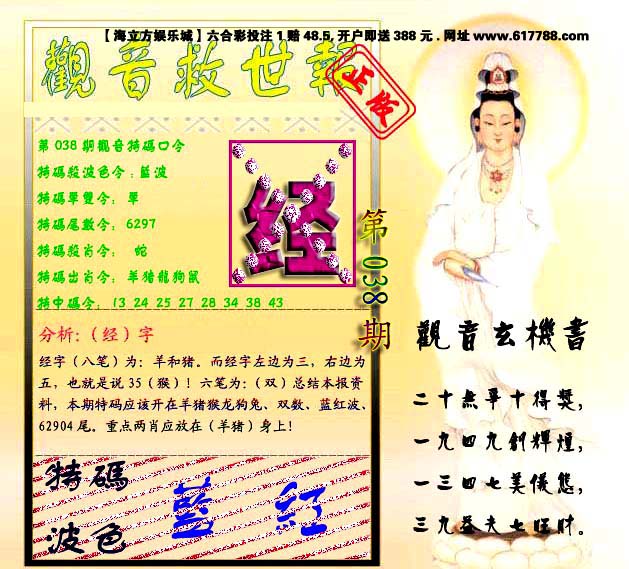 【海立方娱乐城】六合彩投注 1 赔 48.5, 开户即送 388 元 . 网址 www.617788.com
觀音救世報
正体
第 038 期觀音特碼口令
特碼殺波色令 : 藍波
特碼單雙令： 單
特碼尾數令： 6297
特碼殺肖令： 蛇
特碼出肖令： 羊猪龍狗鼠
特中碼令： 13 24 25 27 28 34 38 43
经
第 038 期
分析:（经）字
经字（八笔）为：羊和猪。而经字左边为三，右边为
五，也就是说 35（猴）！六笔为：（双）总结本报资
料，本期特码应该开在羊猪猴龙狗兔、双数、蓝红波、
62904 尾。重点两肖应放在（羊猪）身上！
特碼
波色
藍 红
觀音玄機書
二十無爭十得獎，
一九四九創輝煌，
一三四七美儀態，
三九益夫七旺财。